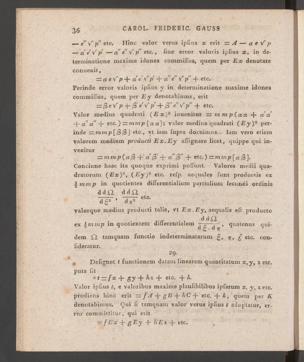 36 CAROL. FRIDERIC. GAUSS
— e″ v″ p″ etc. Hinc valor verus ipsius x erit = A — α e v p
— α′ e′ v′ p′ — α″ e″ v″ p″ etc., siue error valoris ipsius x, in de-
terminatione maxime idonea commissus, quem per Ex denotare
conuenit,
= α e v p + α′ e′ v′ p′ + α″ e″ v″ p″ + etc.
Perinde error valoris ipsius y in determinatione maxime idonea
commissus, quem per Ey denotabimus, erit
= β e v p + β′ e′ v′ p′ + β″ e″ v″ p″ + etc.
Valor medius quadrati (Ex)² inuenitur = m m p (α α + α′ α′
+ α″ α″ + etc.) = m m p [α α]; valor medius quadrati (Ey)² per-
inde = m m p [β β] etc., vt iam supra docuimus. Iam vero etiam
valorem medium producti Ex. Ey assignare licet, quippe qui in-
uenitur
= m m p (α β + α′ β′ + α″ β″ + etc.) = m m p [α β].
Concinne haec ita quoque exprimi possunt. Valores medii qua-
dratorum (Ex)², (Ey)² etc. resp. aequales sunt productis ex
½ m m p in quotientes differentialium partialium secundi ordinis
d d Ω / d ξ², d d Ω / d η² etc.
valorque medius producti talis, vt Ex. Ey, aequalis est producto
ex ½ m m p in quotientem differentialem d d Ω / d ξ. d η, quatenus qui-
dem Ω tamquam functio indeterminatarum ξ, η, ζ etc. con-
sideratur.
29.
Designet t functionem datam linearem quantitatum x, y, z etc.
puta sit
t = f x + g y + h z + etc. + k
Valor ipsius t, e valoribus maxime plausibilibus ipsarum x, y, z etc.
prodiens hinc erit = f A + g B + h C + etc. + k, quem per K
denotabimus. Qui si tamquam valor verus ipsius t adoptatur, er-
ror committitur, qui erit
= f Ex + g Ey + h Ez + etc.